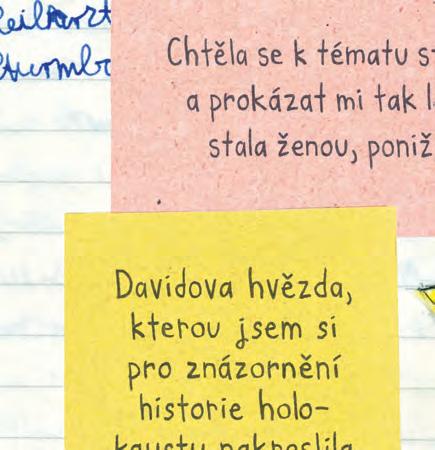 Chtěla se k tématu
a prokázat mi tak
stala ženou,
Davidova hvězda,
kterou jsem si
pro znázornění
historie holo-
kaustu nakreslila